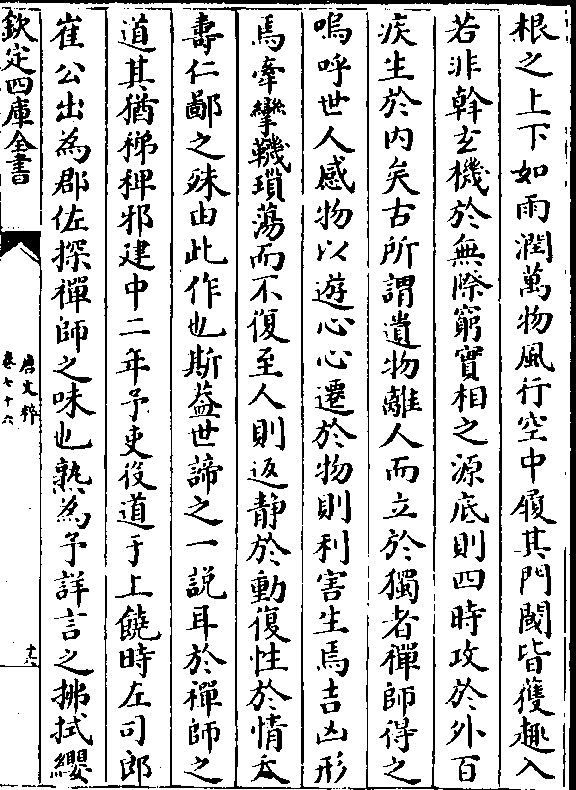 根之上下如雨潤萬物風行空中履其門閾皆獲趣入
若非斡玄機於無際窮實相之源底則四時攻於外百
疾生於内矣古所謂遺物離人而立於獨者禪師得之
嗚呼世人感物以遊心心遷於物則利害生焉吉凶形
焉牽攣羈瑣蕩而不復至人則返静於動復性於情夭
壽仁鄙之殊由此作也斯葢世諦之一説耳於禪師之
道其猶稊稗邪建中二年予吏役道于上饒時左司郎
崔公出為郡佐探禪師之味也熟為予詳言之拂拭纓
欽定四庫全書
唐文粹
卷七十六